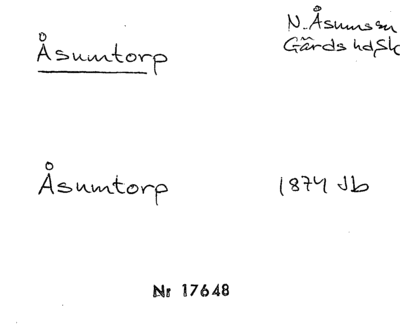 Åsumtorp
N. Åsumssn
Gärds hd, Sk
Åsumtorp
1874 Jb
Nr 17648